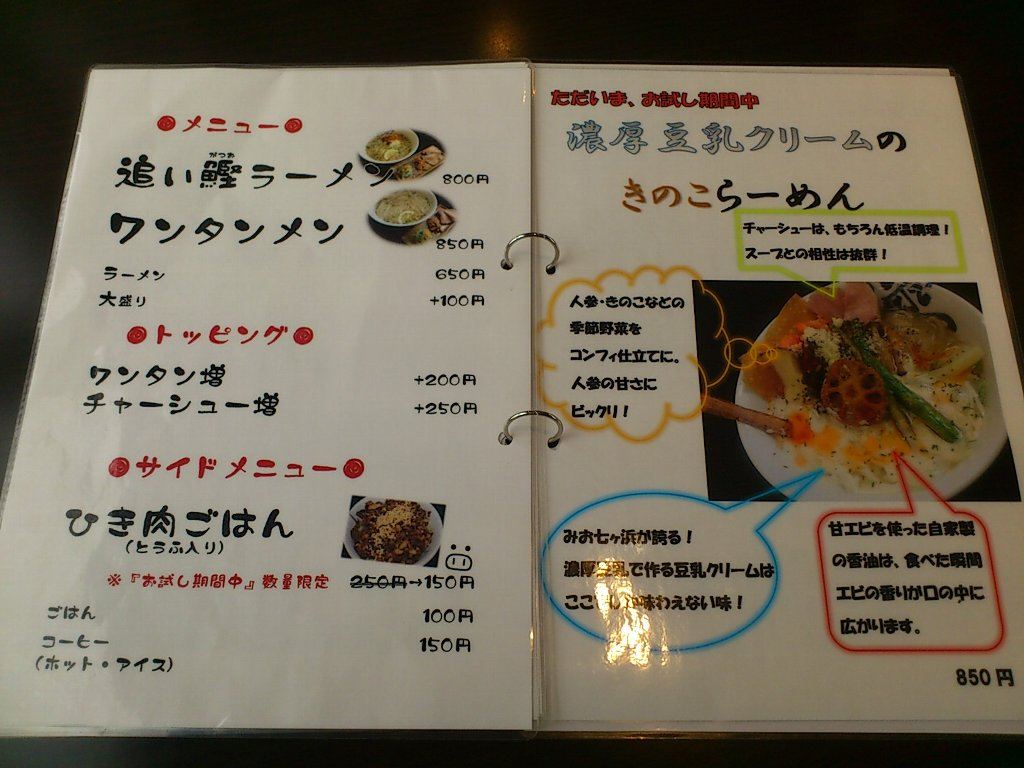 ●メニュー●
かつお
追い鰹ラーメン 800円
ワンタンメン 850円
ラーメン 650円
大盛り +100円
●トッピング●
ワンタン増 +200円
チャーシュー増 +250円
●サイドメニュー●
ひき肉ごはん
(とうふ入り)
※『お試し期間中』数量限定 250円→150円
ごはん 100円
コーヒー 150円
(ホット・アイス)
ただいま、お試し期間中
濃厚豆乳クリームの
きのこらーめん
チャーシューは、もちろん低温調理!
スープとの相性は抜群!
人参・きのこなどの
季節野菜を
コンフィ仕立てに。
人参の甘さに
ビックリ!
みお七ヶ浜が誇る!
濃厚 で作る豆乳クリームは
ここ 味わえない味!
甘エビを使った自家製
の香油は、食べた瞬間
エビの香りが口の中に
広がります。
850円